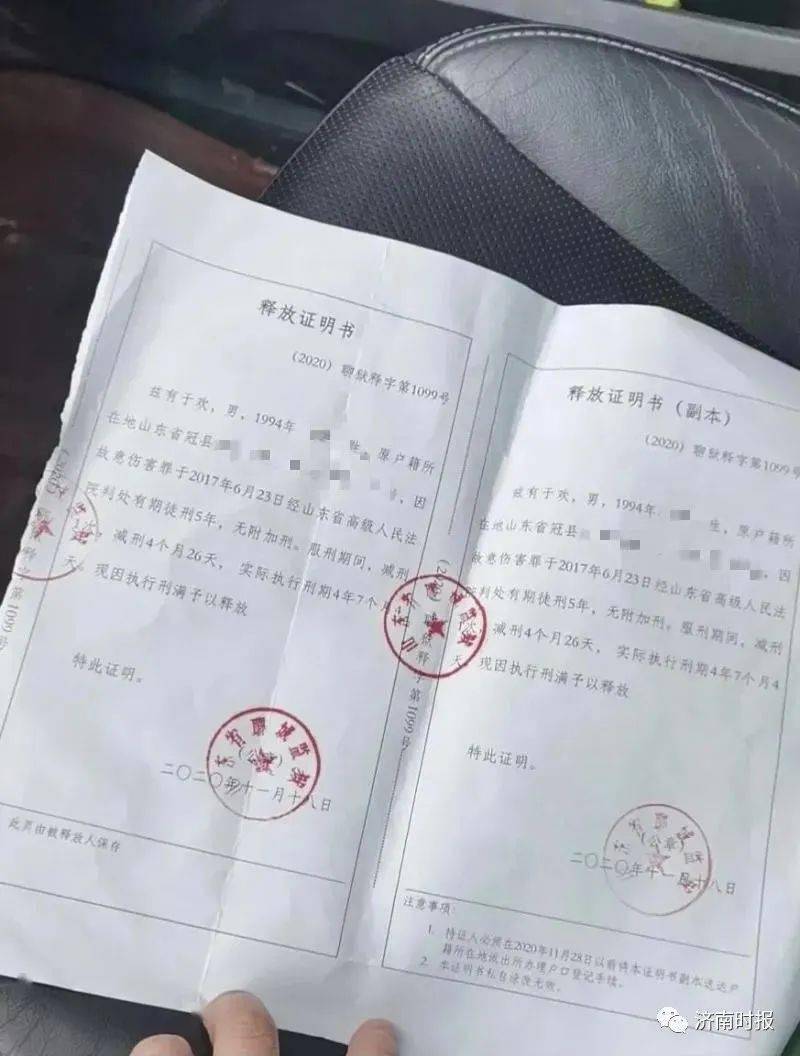 释放证明书
(2020) 聊狱释字第1099号
兹有于欢，男，1994年 生，原户籍所
在地山东省冠县 ，因
故意伤害罪于2017年6月23日经山东省高级人民法
院判处有期徒刑5年，无附加刑。服刑期间，减刑
1次，减刑4个月26天，实际执行刑期4年7个月4
天。现因执行刑满予以释放
特此证明。
山东省聊城监狱
(公章)
二〇二〇年十一月十八日
此页由被释放人保存
(2020) 聊狱释字第1099号
释放证明书（副本）
(2020) 聊狱释字第1099号
兹有于欢，男，1994年 生，原户籍所
在地山东省冠县 ，因
故意伤害罪于2017年6月23日经山东省高级人民法
院判处有期徒刑5年，无附加刑。服刑期间，减刑
1次，减刑4个月26天，实际执行刑期4年7个月4
天。现因执行刑满予以释放
特此证明。
(公章)
二〇二〇年十一月十八日
注意事项：
1. 持证人必须在2020年11月28日以前将本证明书副本送达户
籍所在地派出所办理户口登记手续。
2. 本证明书私自涂改无效。
济南时报